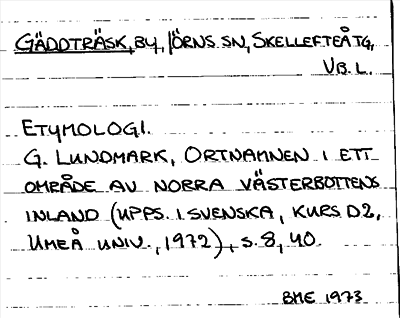 GÄDDTRÄSK, BY, JÖRNS SN, SKELLEFTEÅ TG,
VB. L.
ETYMOLOGI.
G. LUNDMARK, ORTNAMNEN I ETT
OMRÅDE AV NORRA VÄSTERBOTTENS
INLAND (UPPS. I SVENSKA, KURS D2,
UMEÅ UNIV., 1972), S. 8, 40.
BME 1973